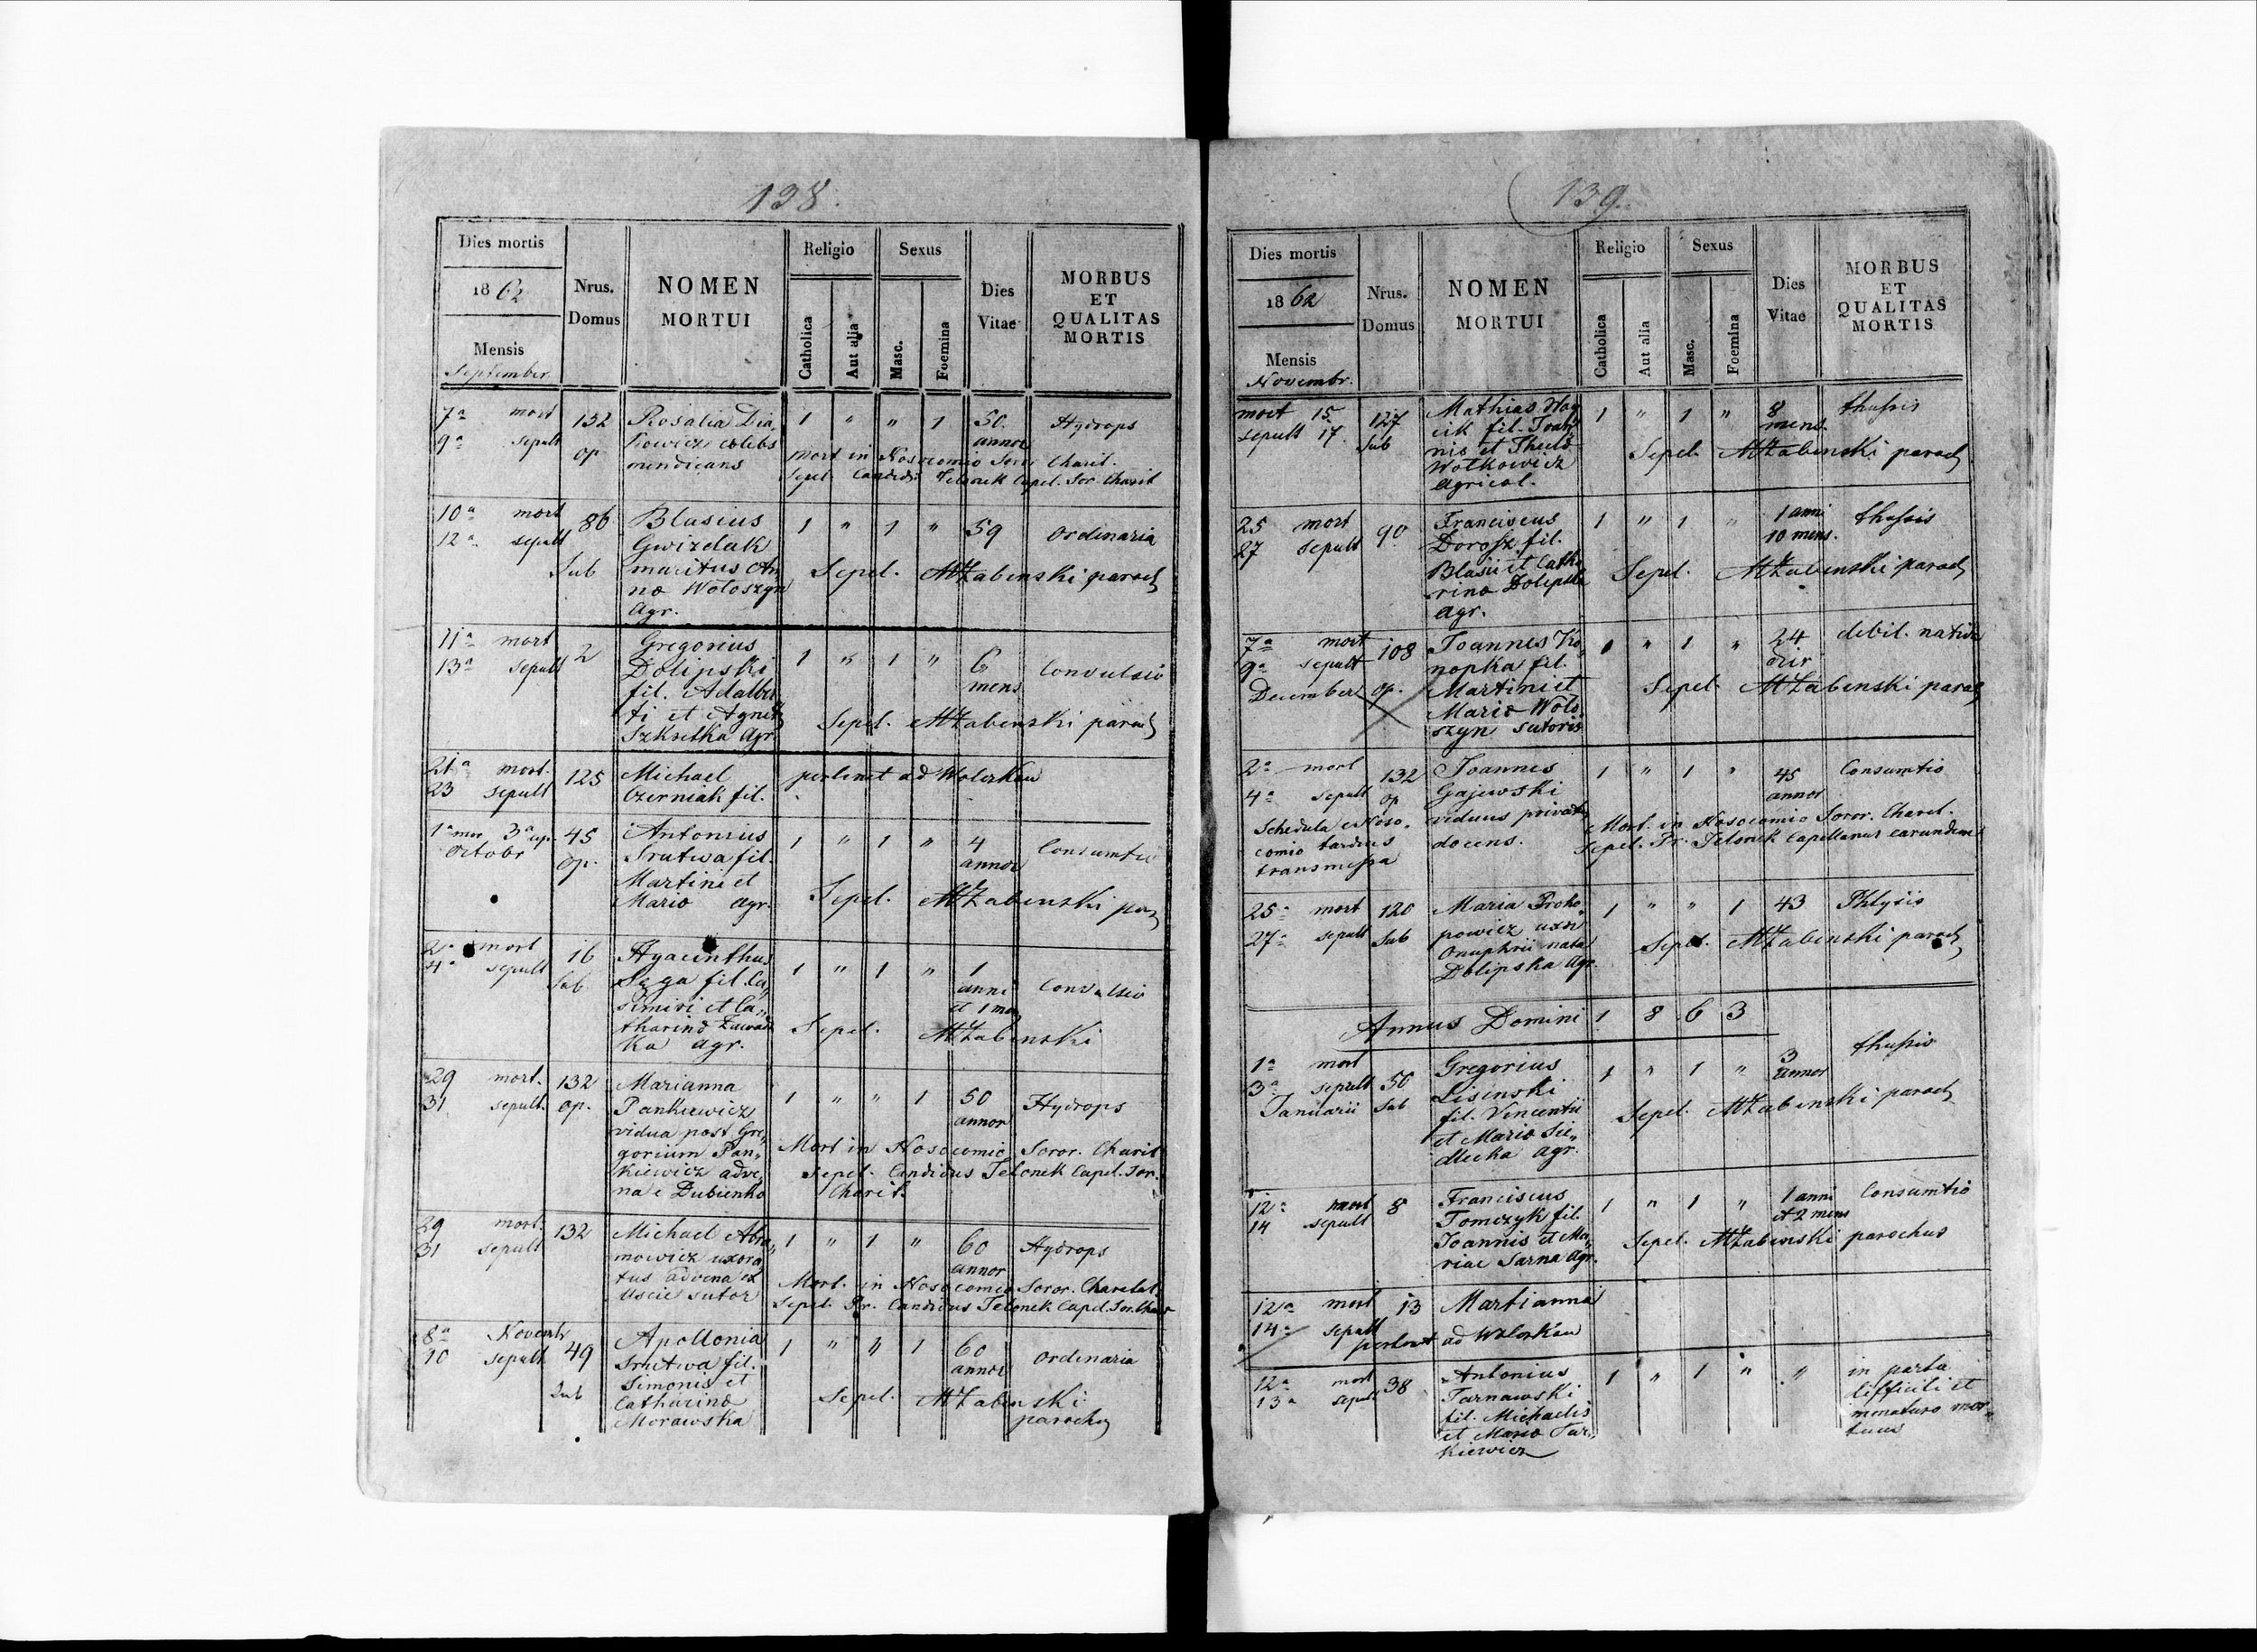 138.
Dies mortis
1862
Mensis
September
Nrus.
Domus
NOMEN
MORTUI
Religio
Catholica
Aut alia
Sexus
Masc.
Foemina
Dies
Vitae
MORBUS
ET
QUALITAS
MORTIS
7a mort 132 Rosalia Dia„ 1 " " 1 50 Hydrops
9a sepult op kowicz coelebs annor
mendicans mort in Nosocomio Soror Charit.
Sepel. Candidus Telonek Capel. Sor. Charit
10a mort 86 Blasius 1 " 1 " 59 Ordinaria
12a sepult Gwizdak
Sub maritus An Sepel. MZabenski paroch
na Wołoszyn
Agr.
11a mort 2 Gregorius 1 " 1 " 6 Convulsio
13a sepult Dolipski mens
fil. Adalber
ti et Agnet Sepel. MZabenski paroch
Agr.
21a mort. 125 Michael pertinet ad
23 sepult Czerniak fil.
1a mor 3a sep. 45 Antonius 1 " 1 " 4 Consumtio
Octobr op. Srutwa fil. annor
Martini et Sepel. MZabenski
Maria agr.
2a mort 16 Hyacinthus 1 " 1 " 1 Convulsio
4a sepult Sub Sęga fil. Ca„ anni
simiri et Ca„ et 1 men
tharina Sepel. MZabenski
ka agr.
29 mort. 132 Marianna 1 " " 1 50 Hydrops
31 sepult. op. Pankiewicz annor
vidua post Gre„
gorium Pan„ Mort in Nosocomio Soror. Charit
kiewicz adve„ Sepel. Candidus Telonek Capel. Sor.
na e Dubienko Charit.
29 mort. 132 Michael Abra„ 1 " 1 " 60 Hydrops
31 sepult mowicz uxora„ annor
tus advena ex Mort. in Nosocomio Soror. Charitat.
Uscie sutor Sepel. Fr. Candidus Telonek Capel. Sor. Char
8a Novembr 49 Apollonia 1 " " 1 60 Ordinaria
10 sepult Srutwa fil. annor
Sub Simonis et Sepel. MZabenski
Catharina parochus
Morawska
139.
Dies mortis
1862
Mensis
Novembr.
Nrus.
Domus
NOMEN
MORTUI
Religio
Catholica
Aut alia
Sexus
Masc.
Foemina
Dies
Vitae
MORBUS
ET
QUALITAS
MORTIS
mort 15 127 Mathias Woy 1 " 1 " 8 thussis
sepult 17 Sub cik fil. Joan„ mens.
nis et Thecla Sepel. MZabenski paroch
Wołkowicz
Agricol.
25 mort 90 Franciscus 1 " 1 " 1 anni thussis
27 sepult Dorosz fil. 10 mens.
Blasii et Catha Sepel. MZabenski paroch
rina Dolipska
Agr.
7a mort 108 Joannes Ko„ 1 " 1 " 24 debil. nativa
9a sepult nopka fil. dier
December op. Martini et Sepel. MZabenski paroch
Maria Woło
szyn sutoris
2a mort 132 Joannes 1 " 1 " 45 Consumtio
4a sepult op Gajewski annor
Schedula e Noso„ viduus privat Mort. in Nosocomio Soror. Charit.
comio tardius docens. Sepel. Fr. Telonek Capellanus earundem
transmissa
25a mort 120 Maria Proko„ 1 " " 1 43 Phtysis
27a sepult Sub powicz uxor
Onuphrii nata Sepel. MZabenski paroch
Dolipska Agr.
Annus Domini 1863
1a mort Gregorius 1 " 1 " 3 thussis
3a sepult 50 Lisinski annor
Januarii Sub fil. Vincentii Sepel. MZabenski paroch
et Maria Sie„
dlecka agr.
12a mort 8 Franciscus 1 " 1 " 1 anni Consumtio
14 sepult Tomczyk fil. et 2 mens
Joannis et Ma„ Sepel. MZabenski parochus
riae Sarna Agr.
12a mort 13 Martianna
14a sepult pertinet ad
12a mort 38 Antonius 1 " 1 " " in partu
13a sepult Tarnawski difficili et
fil. Michaelis immaturo mor„
et Maria Tur„ tuus
kiewicz